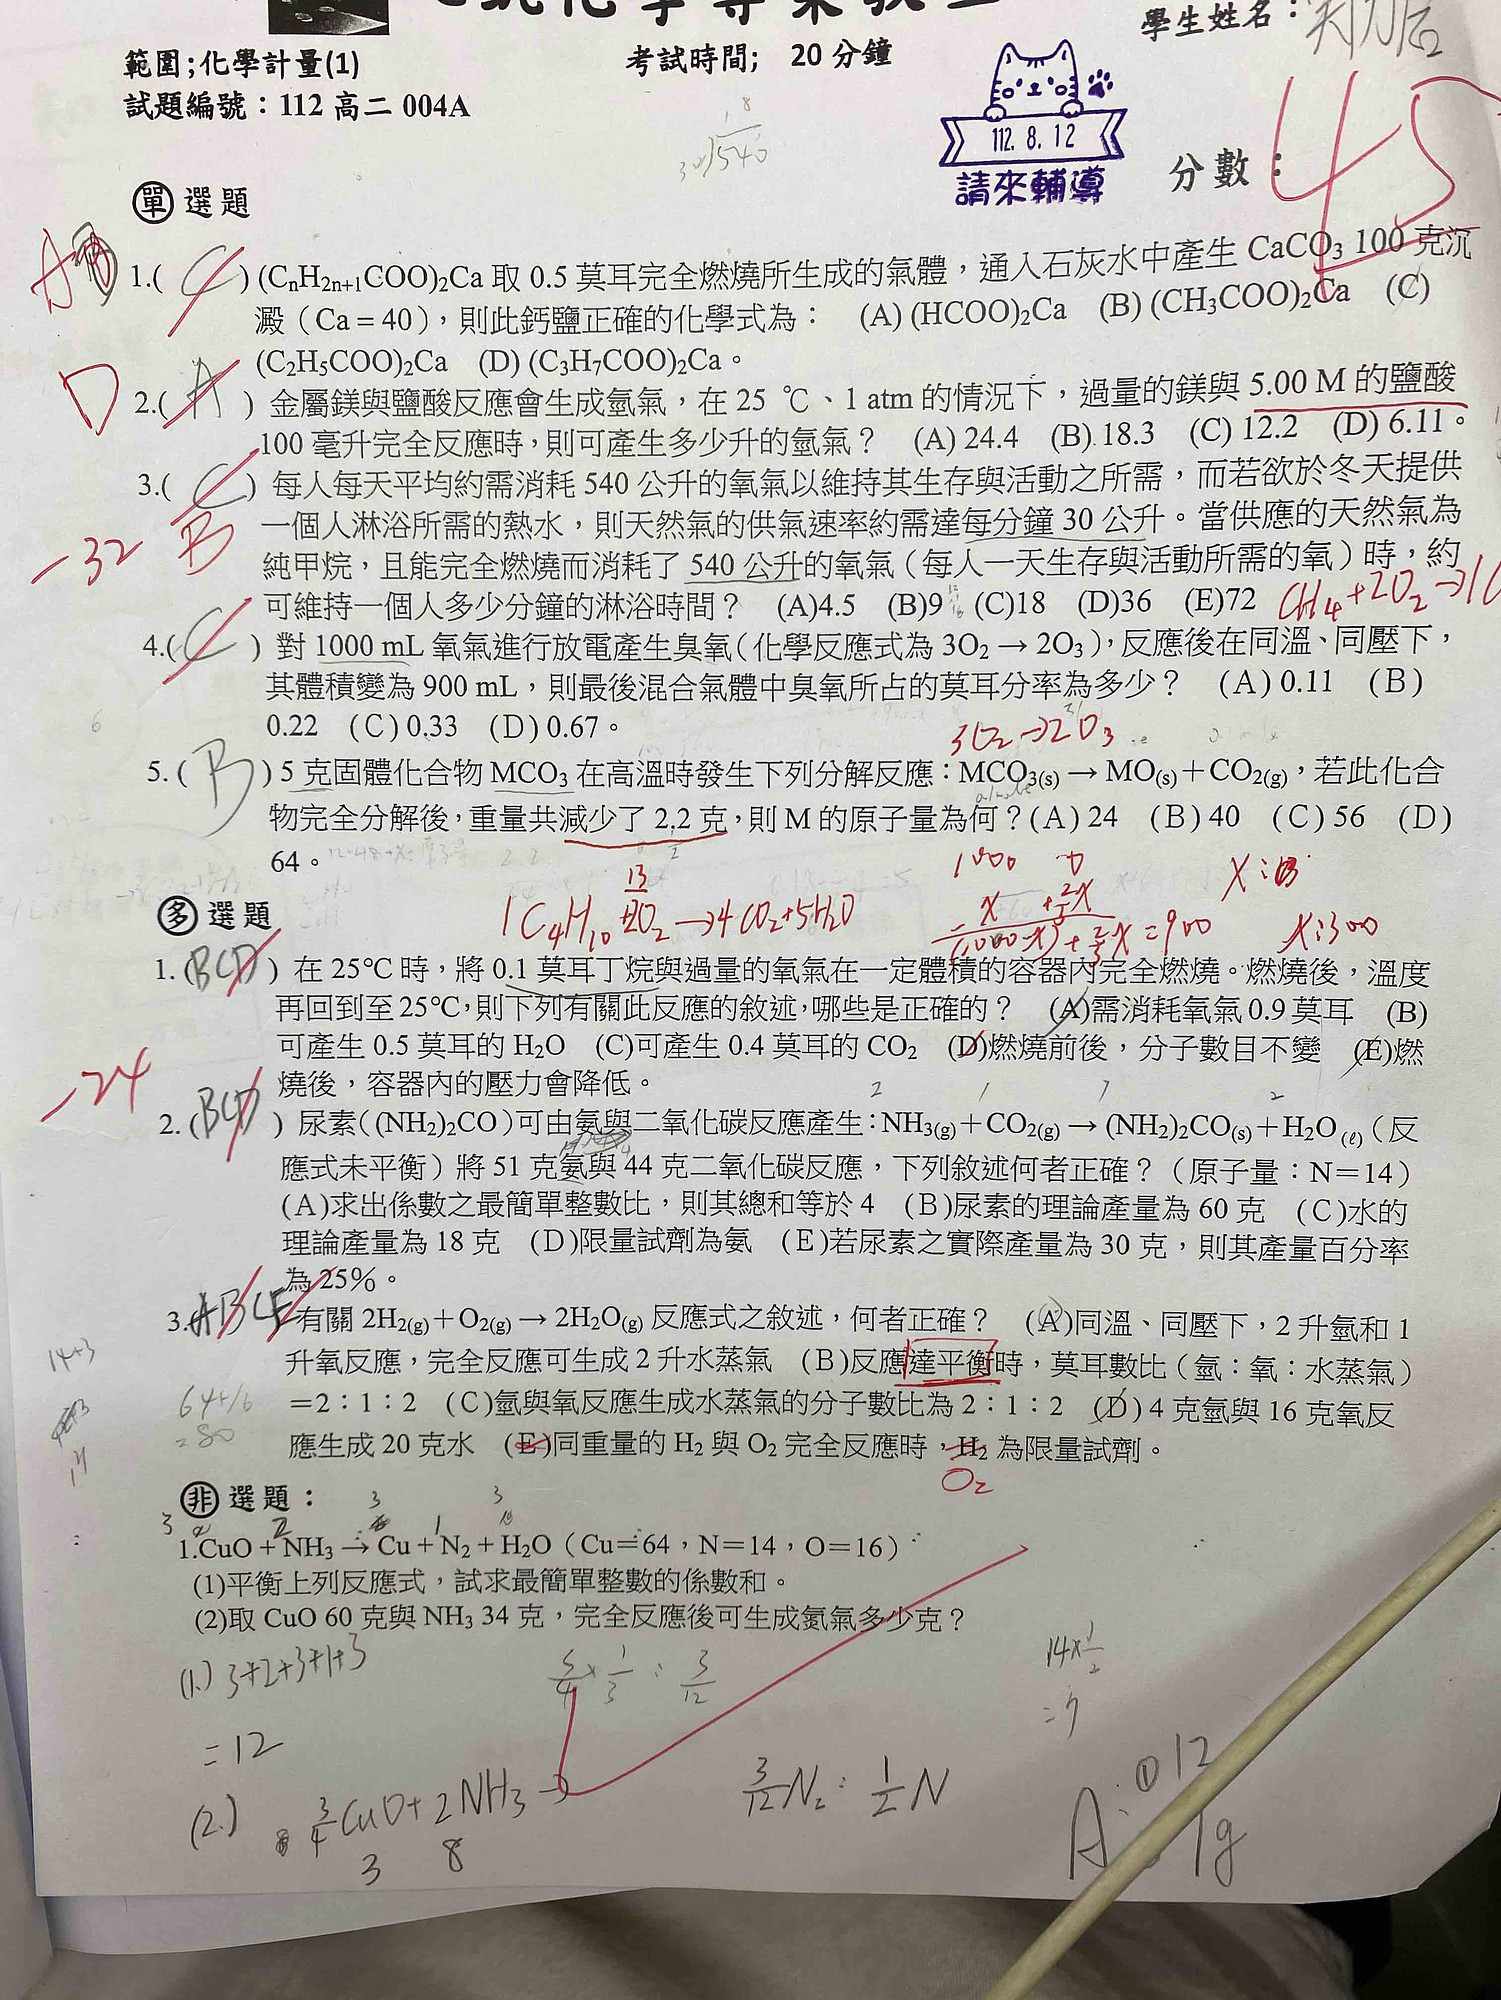 化學專業教室
學生姓名：
範圍;化學計量(1)
考試時間; 20分鐘
試題編號：112高二004A
112. 8. 12
請來輔導
分數：45
18
30)540
單選題
1.( C ) (CnH2n+1COO)2Ca 取 0.5 莫耳完全燃燒所生成的氣體，通入石灰水中產生 CaCO3 100 克沉
澱（Ca = 40），則此鈣鹽正確的化學式為： (A) (HCOO)2Ca (B) (CH3COO)2Ca (C)
(C2H5COO)2Ca (D) (C3H7COO)2Ca。
D 2.( A ) 金屬鎂與鹽酸反應會生成氫氣，在 25 ℃、1 atm 的情況下，過量的鎂與 5.00 M 的鹽酸
100 毫升完全反應時，則可產生多少升的氫氣？ (A) 24.4 (B) 18.3 (C) 12.2 (D) 6.11。
3.( C ) 每人每天平均約需消耗 540 公升的氧氣以維持其生存與活動之所需，而若欲於冬天提供
-32 B 一個人淋浴所需的熱水，則天然氣的供氣速率約需達每分鐘 30 公升。當供應的天然氣為
純甲烷，且能完全燃燒而消耗了 540 公升的氧氣（每人一天生存與活動所需的氧）時，約
可維持一個人多少分鐘的淋浴時間？ (A)4.5 (B)9 (C)18 (D)36 (E)72 CH4+2O2→1C
4.( C ) 對 1000 mL 氧氣進行放電產生臭氧（化學反應式為 3O2 → 2O3），反應後在同溫、同壓下，
其體積變為 900 mL，則最後混合氣體中臭氧所占的莫耳分率為多少？ (A) 0.11 (B)
0.22 (C) 0.33 (D) 0.67。
3O2→2O3
5. ( B ) 5 克固體化合物 MCO3 在高溫時發生下列分解反應：MCO3(s) → MO(s)＋CO2(g)，若此化合
物完全分解後，重量共減少了 2.2 克，則 M 的原子量為何？(A) 24 (B) 40 (C) 56 (D)
64。
1000 0
x +2/3x
(1000-x)+2/3x=900
x:300
多選題
1C4H10 13/2O2→4CO2+5H2O
1. (BCD) 在 25℃時，將 0.1 莫耳丁烷與過量的氧氣在一定體積的容器內完全燃燒。燃燒後，溫度
再回到至 25℃，則下列有關此反應的敘述，哪些是正確的？ (A)需消耗氧氣 0.9 莫耳 (B)
可產生 0.5 莫耳的 H2O (C)可產生 0.4 莫耳的 CO2 (D)燃燒前後，分子數目不變 (E)燃
燒後，容器內的壓力會降低。
-24
2 1 1 2
2. (BCD) 尿素（(NH2)2CO）可由氨與二氧化碳反應產生：NH3(g)＋CO2(g) → (NH2)2CO(s)＋H2O(ℓ)（反
應式未平衡）將 51 克氨與 44 克二氧化碳反應，下列敘述何者正確？（原子量：N＝14）
(A)求出係數之最簡單整數比，則其總和等於 4 (B)尿素的理論產量為 60 克 (C)水的
理論產量為 18 克 (D)限量試劑為氨 (E)若尿素之實際產量為 30 克，則其產量百分率
為 25%。
3.(ABCE 有關 2H2(g)＋O2(g) → 2H2O(g) 反應式之敘述，何者正確？ (A)同溫、同壓下，2 升氫和 1
升氧反應，完全反應可生成 2 升水蒸氣 (B)反應達平衡時，莫耳數比（氫：氧：水蒸氣）
＝2：1：2 (C)氫與氧反應生成水蒸氣的分子數比為 2：1：2 (D) 4 克氫與 16 克氧反
應生成 20 克水 (E)同重量的 H2 與 O2 完全反應時，H2 為限量試劑。
O2
14+3
17
64+16
=80
非選題：
3 2 3 1 3
1.CuO + NH3 → Cu + N2 + H2O（Cu＝64，N＝14，O＝16）
(1)平衡上列反應式，試求最簡單整數的係數和。
(2)取 CuO 60 克與 NH3 34 克，完全反應後可生成氮氣多少克？
(1.) 3+2+3+1+3
=12
3/4 × 1/3 = 3/12
14×1/2
=7
(2.) 3/4 CuO + 2NH3 →
3 8
3/12 N2 : 1/2 N
A: ①12
7g